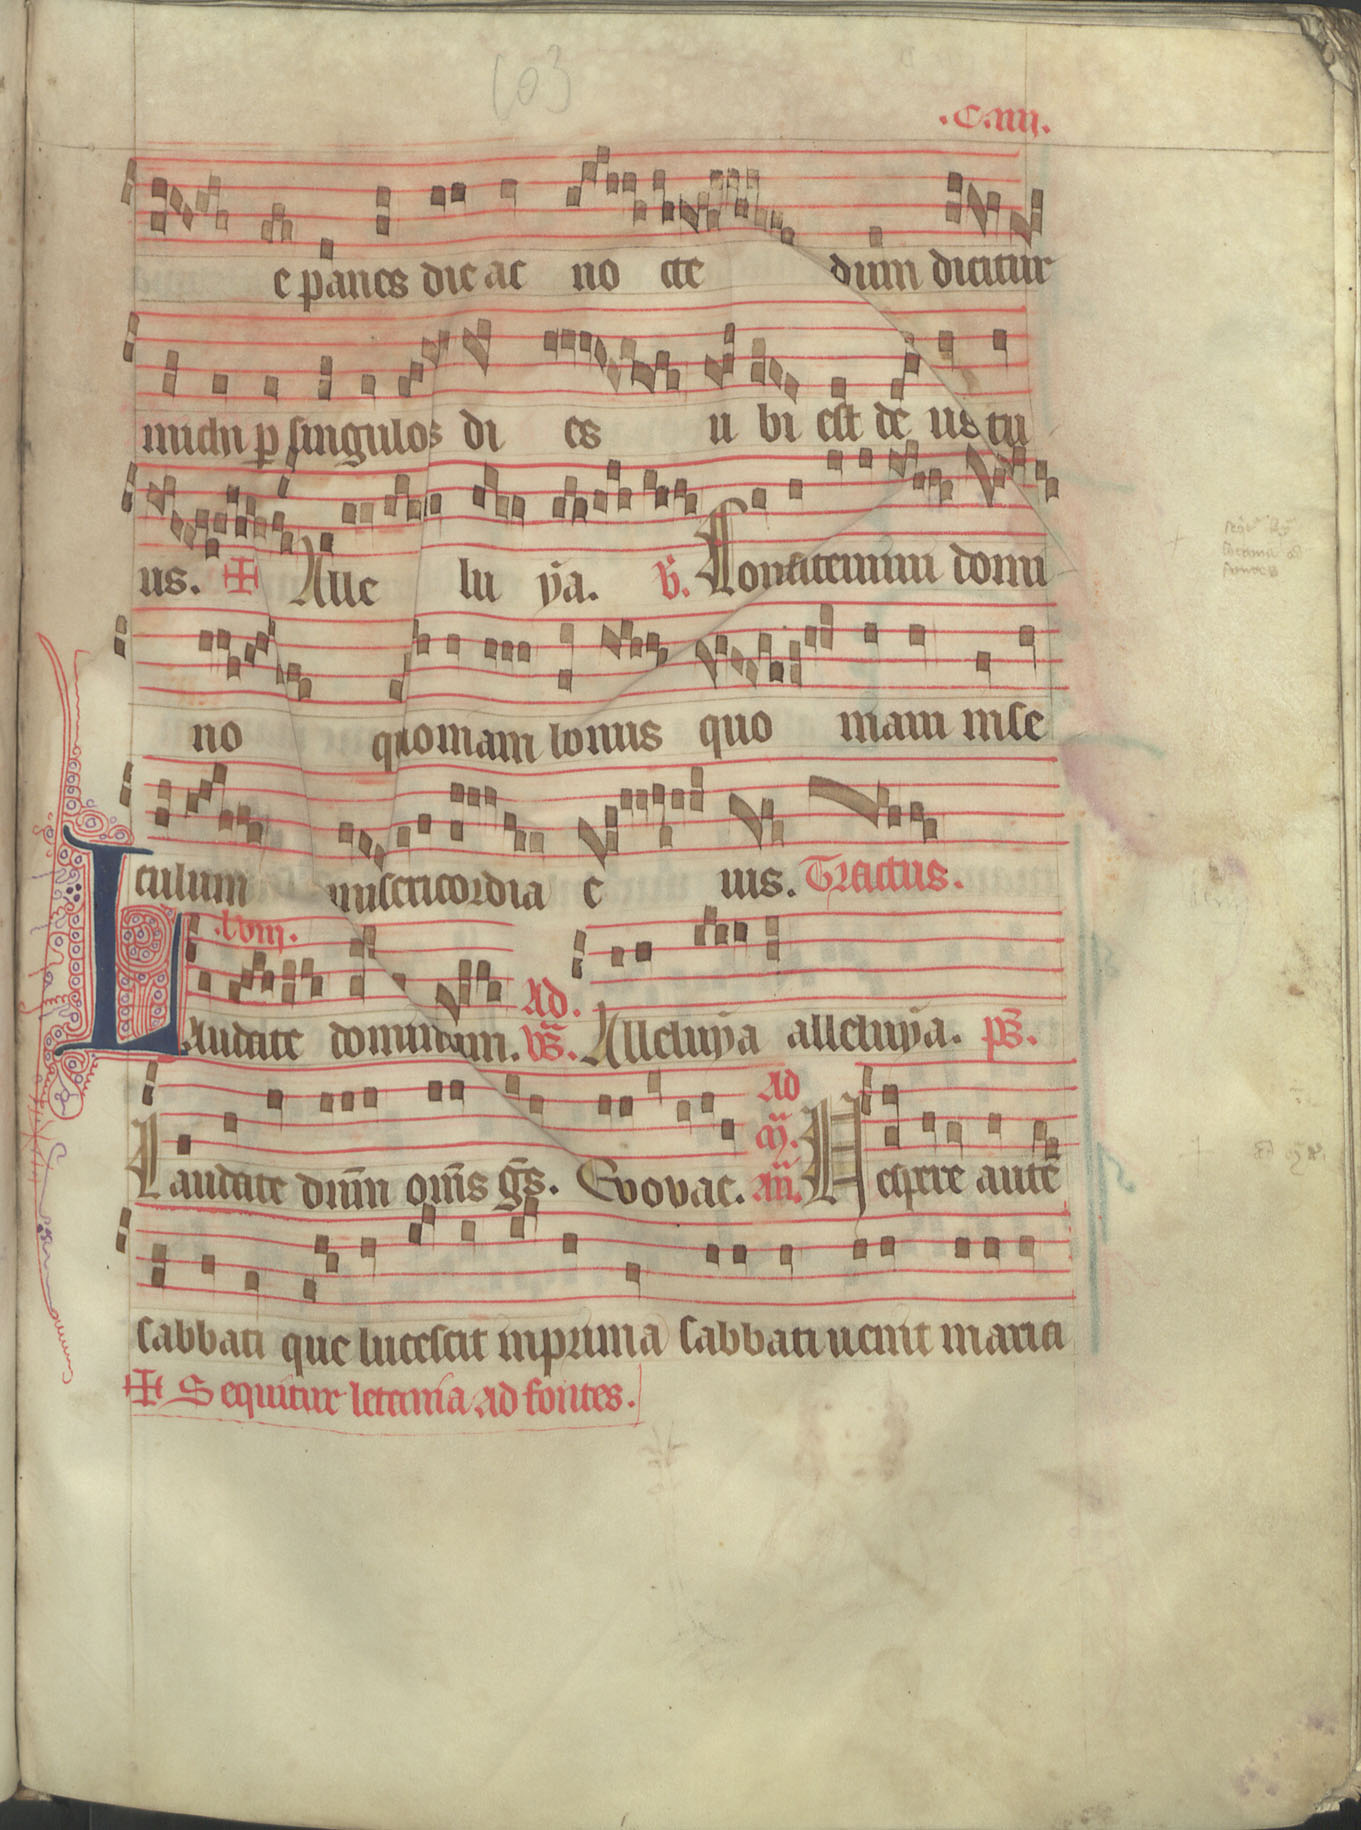 103
.C.iiii.
e panes die ac no cte dum dicitur
michi p singulos di es u bi est de us tu
us. ✠ Alle lu ya. V. Confitemini domi
no quoniam bonus quo niam in se
culum misericordia e ius. Tractus.
.lviii.
Laudate dominum. Ad. vs̄. Alleluya alleluya. ps̄.
Ad
Laudate dn̄m om̄s gs̄. Evovae. an̄. Vespere autē
sabbati que lucescit in prima sabbati uenit maria
✠ Sequitur letania ad fontes.